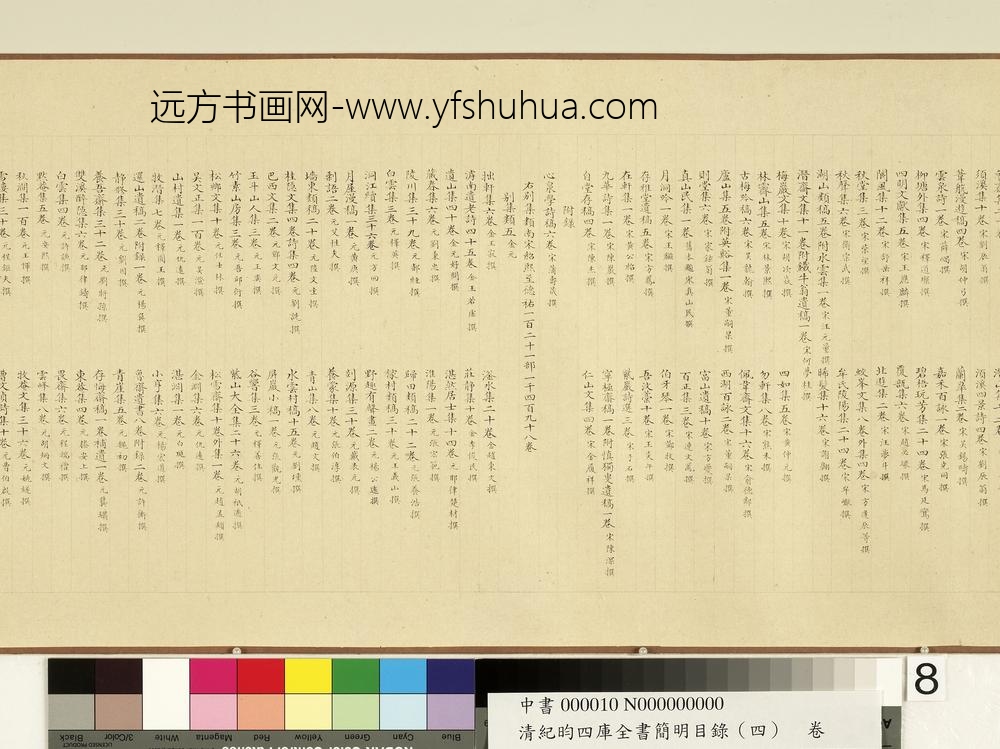 远方书画网-www.yfshuhua.com
須溪集十卷宋劉辰翁撰
須溪四景詩四卷宋劉辰翁撰
葦航漫遊稿四卷宋胡仲弓撰
蘭皋集二卷宋吳錫疇撰
雲泉詩一卷宋薛嵎撰
嘉禾百詠一卷宋張堯同撰
柳塘外集四卷宋釋道璨撰
碧梧玩芳集二十四卷宋馬廷鸞撰
四明文獻集五卷宋王應麟撰
覆瓿集六卷宋趙必𤩪撰
閬風集十二卷宋舒岳祥撰
北遊集一卷宋汪夢斗撰
秋堂集三卷宋柴望撰
蛟峯文集八卷外集四卷宋方逢辰等撰
秋聲集六卷宋衛宗武撰
牟氏陵陽集二十四卷宋牟巘撰
湖山類稿五卷附水雲集一卷宋汪元量撰
晞髮集十六卷宋謝翱撰
潛齋文集十一卷附鐵牛翁遺稿一卷宋何夢桂撰
梅巖文集十卷宋胡次焱撰
四如集五卷宋黃仲元撰
林霽山集五卷宋林景熙撰
勿軒集八卷宋熊禾撰
古梅吟稿六卷宋吳龍翰撰
佩韋齋文集十六卷宋俞德鄰撰
廬山集五卷附英谿集一卷宋董嗣杲撰
西湖百詠二卷宋董嗣杲撰
則堂集六卷宋家鉉翁撰
富山遺稿十卷宋方夔撰
真山民集一卷舊本題宋真山民撰
百正集三卷宋連文鳳撰
月洞吟一卷宋王鎡撰
伯牙琴一卷宋鄧牧撰
存雅堂遺稿五卷宋方鳳撰
吾汶藁十卷宋王炎午撰
在軒集一卷宋黃公紹撰
紫巖詩選三卷宋于石撰
九華詩集一卷宋陳巖撰
寧極齋稿一卷附慎獨叟遺稿一卷宋陳深撰
自堂存稿四卷宋陳杰撰
仁山文集四卷宋金履祥撰
附錄
心泉學詩稿六卷宋蒲壽宬撰
右別集類南宋起熙至德祐一百二十一部二千四百九十八卷
別集類五金元
拙軒集六卷金王寂撰
滏水集二十卷金趙秉文撰
滹南遺老詩四十五卷金王若虛撰
莊靜集十卷金李俊民撰
遺山集四十卷金元好問撰
湛然居士集十四卷元耶律楚材撰
藏春集六卷元劉秉忠撰
淮陽集一卷元張宏範撰
陵川集三十九卷元郝經撰
歸田類稿二十二卷元張養浩撰
白雲集三卷元釋英撰
稼村類稿三十卷元王義山撰
桐江續集三十六卷元方回撰
野趣有聲畫二卷元楊公遠撰
月屋漫稿一卷元黃庚撰
剡源集三十卷元戴表元撰
剩語二卷元艾性夫撰
養蒙集十卷元張伯淳撰
墻東類稿二十卷元陸文圭撰
青山集八卷元趙文撰
桂隱文集四卷詩集四卷元劉詵撰
水雲村稿十五卷元劉壎撰
巴西文集一卷元鄧文原撰
屏巖小稿一卷元張觀光撰
玉斗山人集三卷元王奕撰
谷響集三卷元釋善住撰
竹素山房集三卷元吾邱衍撰
紫山大全集二十六卷元胡祗遹撰
松鄉文集十卷元任士林撰
松雪齋集十卷外集一卷元趙孟頫撰
吳文正集一百卷元吳澄撰
金淵集六卷元仇遠撰
山村遺集一卷元仇遠撰
湛淵集一卷元白珽撰
牧潛集七卷元釋圓至撰
小亨集六卷元楊宏道撰
還山遺稿二卷附錄一卷元楊奐撰
魯齋遺書八卷附錄二卷元許衡撰
靜修集三十卷元劉因撰
青崖集五卷元魏初撰
養吾齋集三十二卷元劉將孫撰
存悔齋稿一卷補遺一卷元龔璛撰
雙溪醉隱集六卷元耶律鑄撰
東菴集四卷元滕安上撰
白雲集四卷元許謙撰
畏齋集六卷元程端禮撰
默菴集五卷元安熙撰
雲峰集八卷元胡炳文撰
秋澗集一百卷元王惲撰
牧菴文集三十六卷元姚燧撰
雪樓集三十卷元程鉅夫撰
曹文貞詩集十卷元曹伯啟撰
8
中書 000010 N000000000
清紀昀四庫全書簡明目錄（四） 卷
Blue
Cyan
Green
Yellow
Red
Magenta
White
3/Color
Black